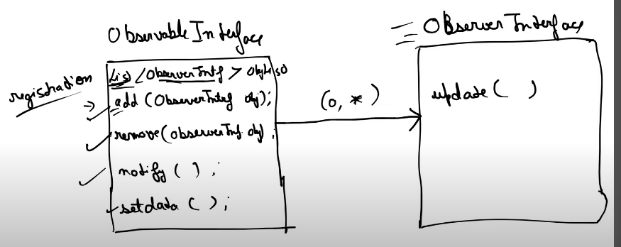 Observable Interface
List <ObserverIntf> ObjList
registration
add (ObserverIntf obj);
remove (observerInf. obj) ;
notify ( ) ;
setdata ( ) ;
(0, *)
OBserver Interface
update ( )